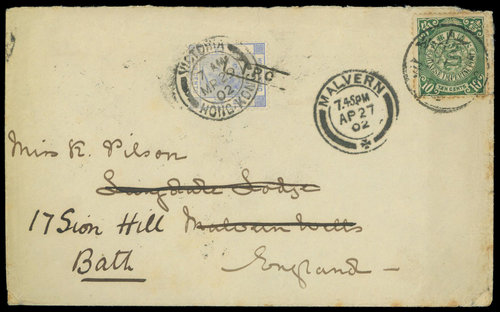 VICTORIA
7 AM
MA 29
02
HONG-KONG
MALVERN
7.45PM
AP 27
02
10
10
Miss K. Pilson
Langdale Lodge
17 Sion Hill Malvern Wells
Bath England